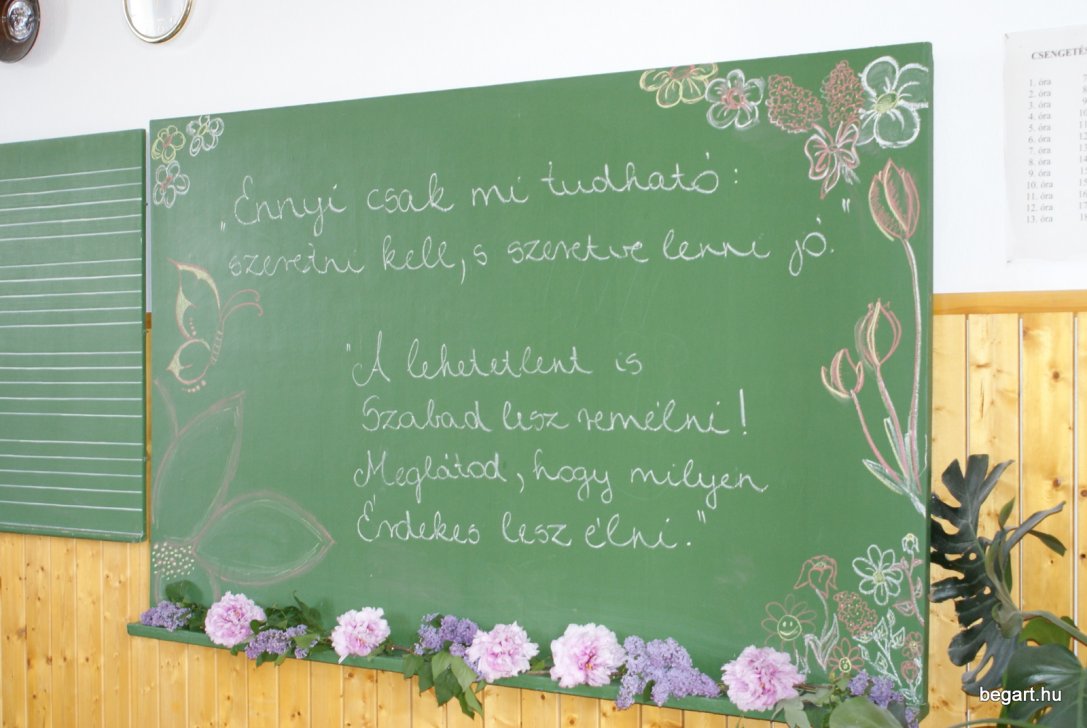 „Ennyi csak mi tudható:
szeretni kell, s szeretve lenni jó."
"A lehetetlent is
Szabad lesz remélni!
Meglátod, hogy milyen
Érdekes lesz élni."
CSENGETÉS
1. óra
2. óra
3. óra
4. óra
5. óra
6. óra
7. óra
8. óra
9. óra
10. óra
11. óra
12. óra
13. óra
begart.hu